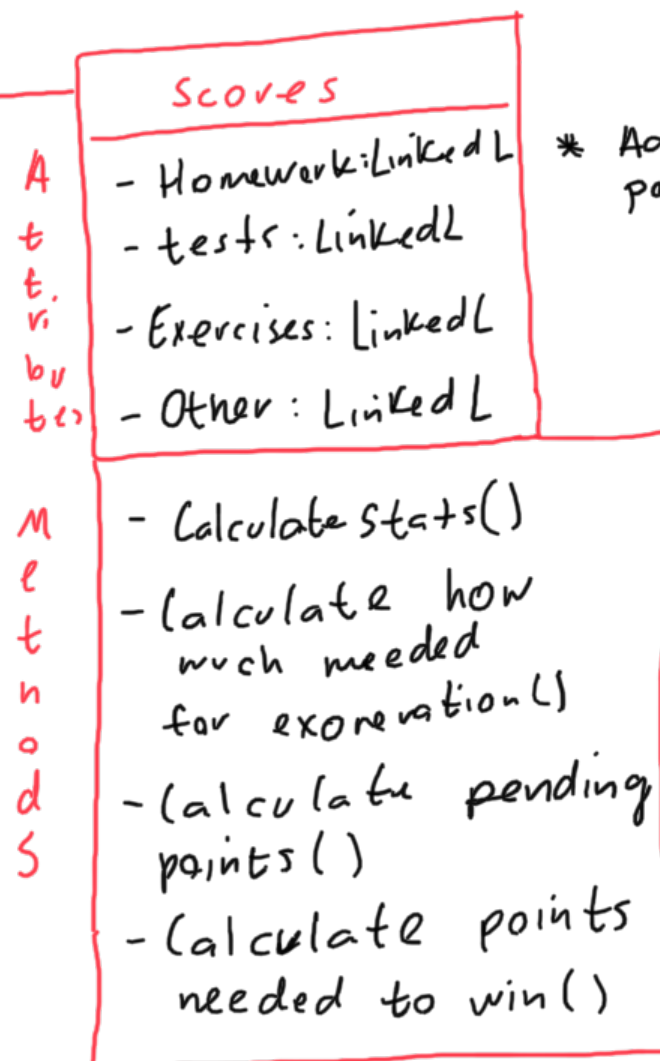 Scores
Attributes
- Homework: Linked L
- tests: LinkedL
- Exercises: LinkedL
- Other: Linked L
Methods
- Calculate Stats()
- Calculate how
much needed
for exoneration()
- Calculate pending
points()
- Calculate points
needed to win()